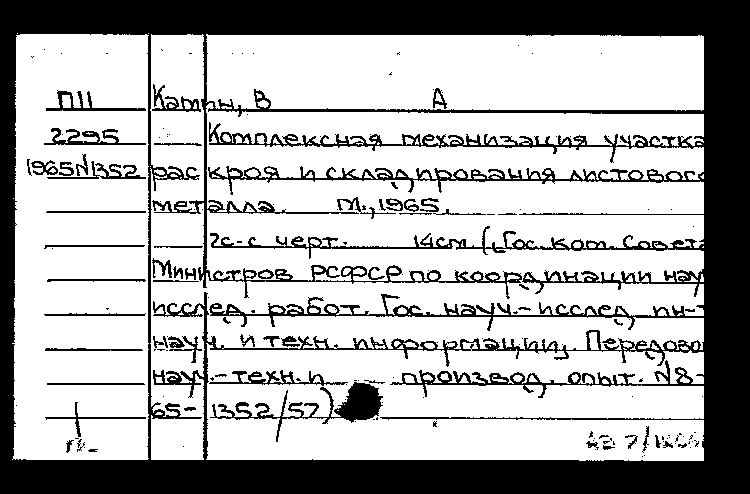 П11 Катры, В А
2295 Комплексная механизация участка
1965N1352 раскроя и складирования листового
металла. М., 1965.
7с. с черт. 14см (Гос. ком. Совета
Министров РСФСР по координации нау
исслед. работ. Гос. науч.-исслед. ин-т
науч. и техн. информации. Передово
науч.-техн. и производ. опыт. N8-
65-1352/57)